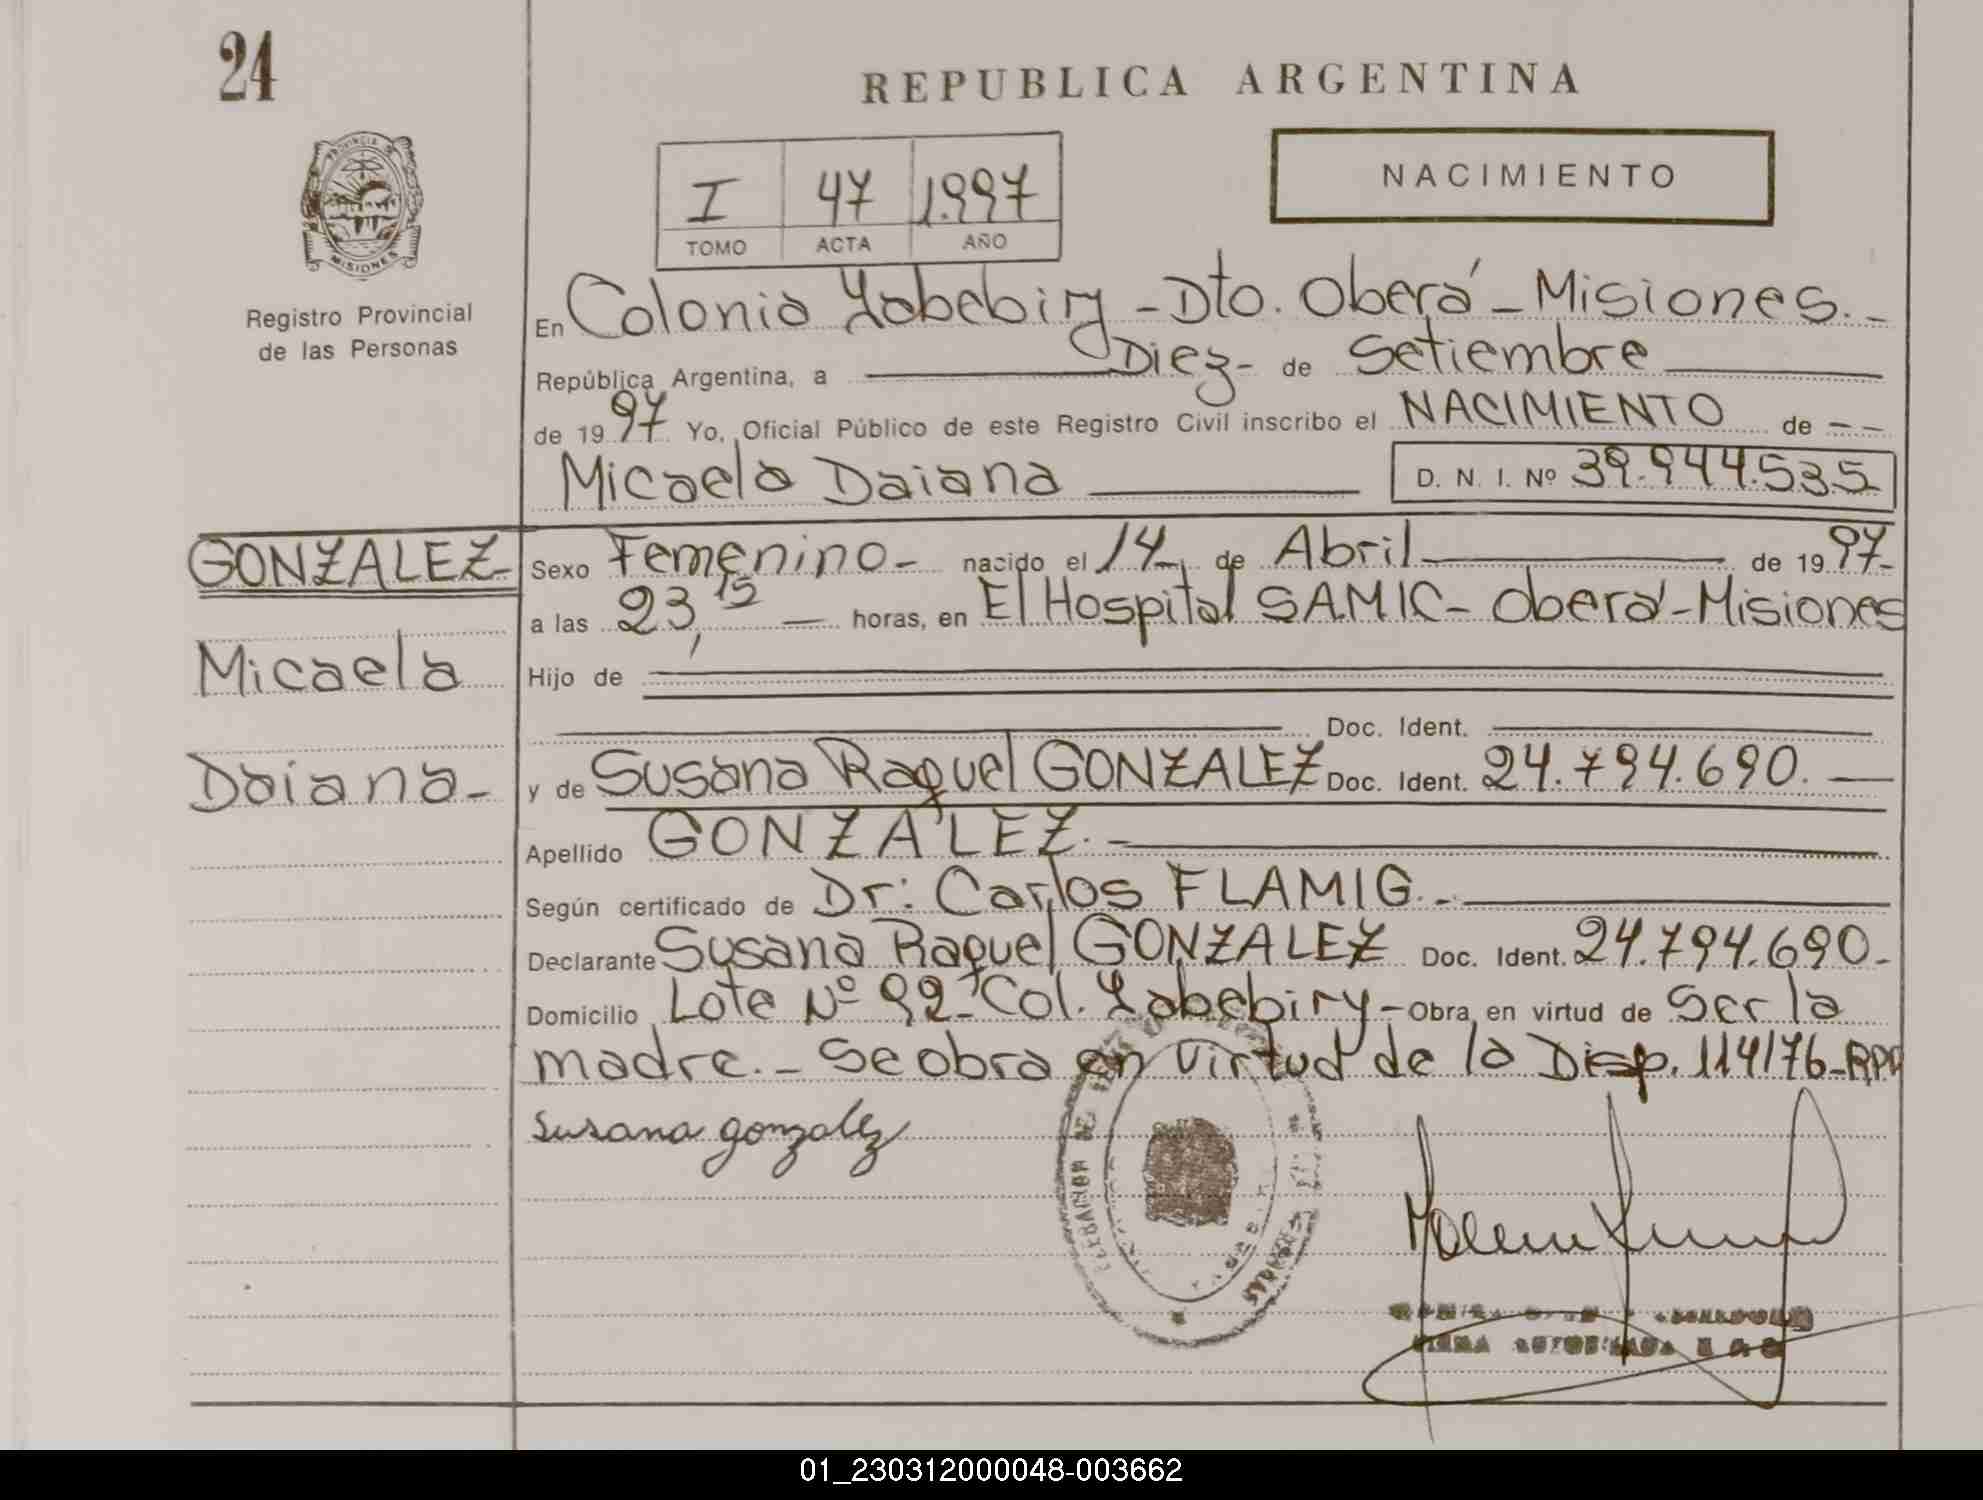 24
REPUBLICA ARGENTINA
PROVINCIA D
MISIONES
Registro Provincial
de las Personas
I 47 1.997
TOMO ACTA AÑO
NACIMIENTO
En Colonia Yabebiry - Dto. Oberá - Misiones. -
República Argentina, a Diez - de Setiembre
de 1997 Yo, Oficial Público de este Registro Civil inscribo el NACIMIENTO de --
Micaela Daiana D. N. I. Nº 39.944.535
GONZALEZ
Micaela
Daiana -
Sexo Femenino - nacido el 14 - de Abril de 1997 -
a las 23,15 — horas, en El Hospital SAMIC - Oberá - Misiones
Hijo de
Doc. Ident.
y de Susana Raquel GONZALEZ Doc. Ident. 24.794.690. —
Apellido GONZALEZ. -
Según certificado de Dr: Carlos FLAMIG. -
Declarante Susana Raquel GONZALEZ Doc. Ident. 24.794.690. -
Domicilio Lote Nº 92 - Col. Yabebiry - Obra en virtud de Ser la
madre. - Se obra en virtud de la Disp. 114/76 - RPP
Susana gonzalez
01_230312000048-003662